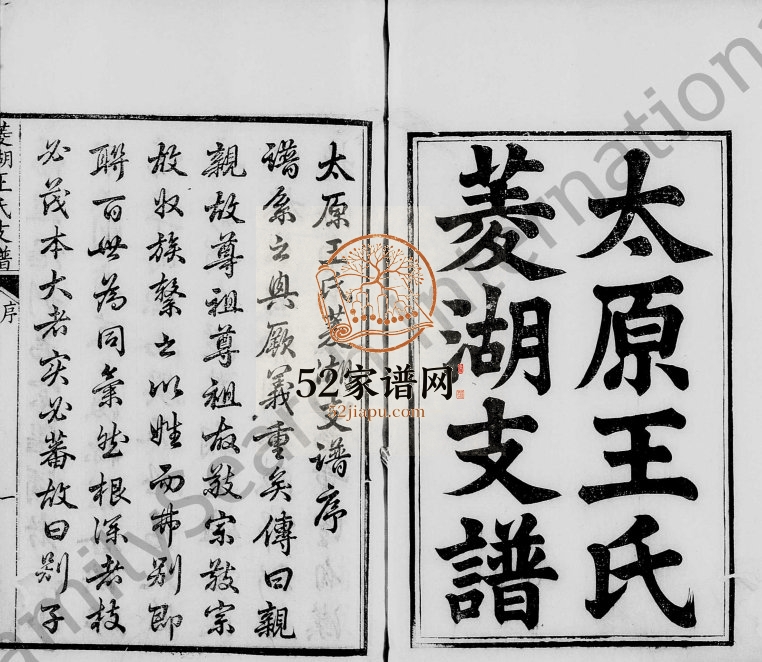 太原王氏
菱湖支譜
太原王氏菱湖支譜序
譜系之興厥義重矣傳曰親
親故尊祖尊祖故敬宗敬宗
故收族繫之以姓而弗別即
聯百世為同氣然根深者枝
必茂本大者实必蕃故曰别子
菱湖王氏支譜
序
一
52家谱网
52jiapu.com
FamilySearch International